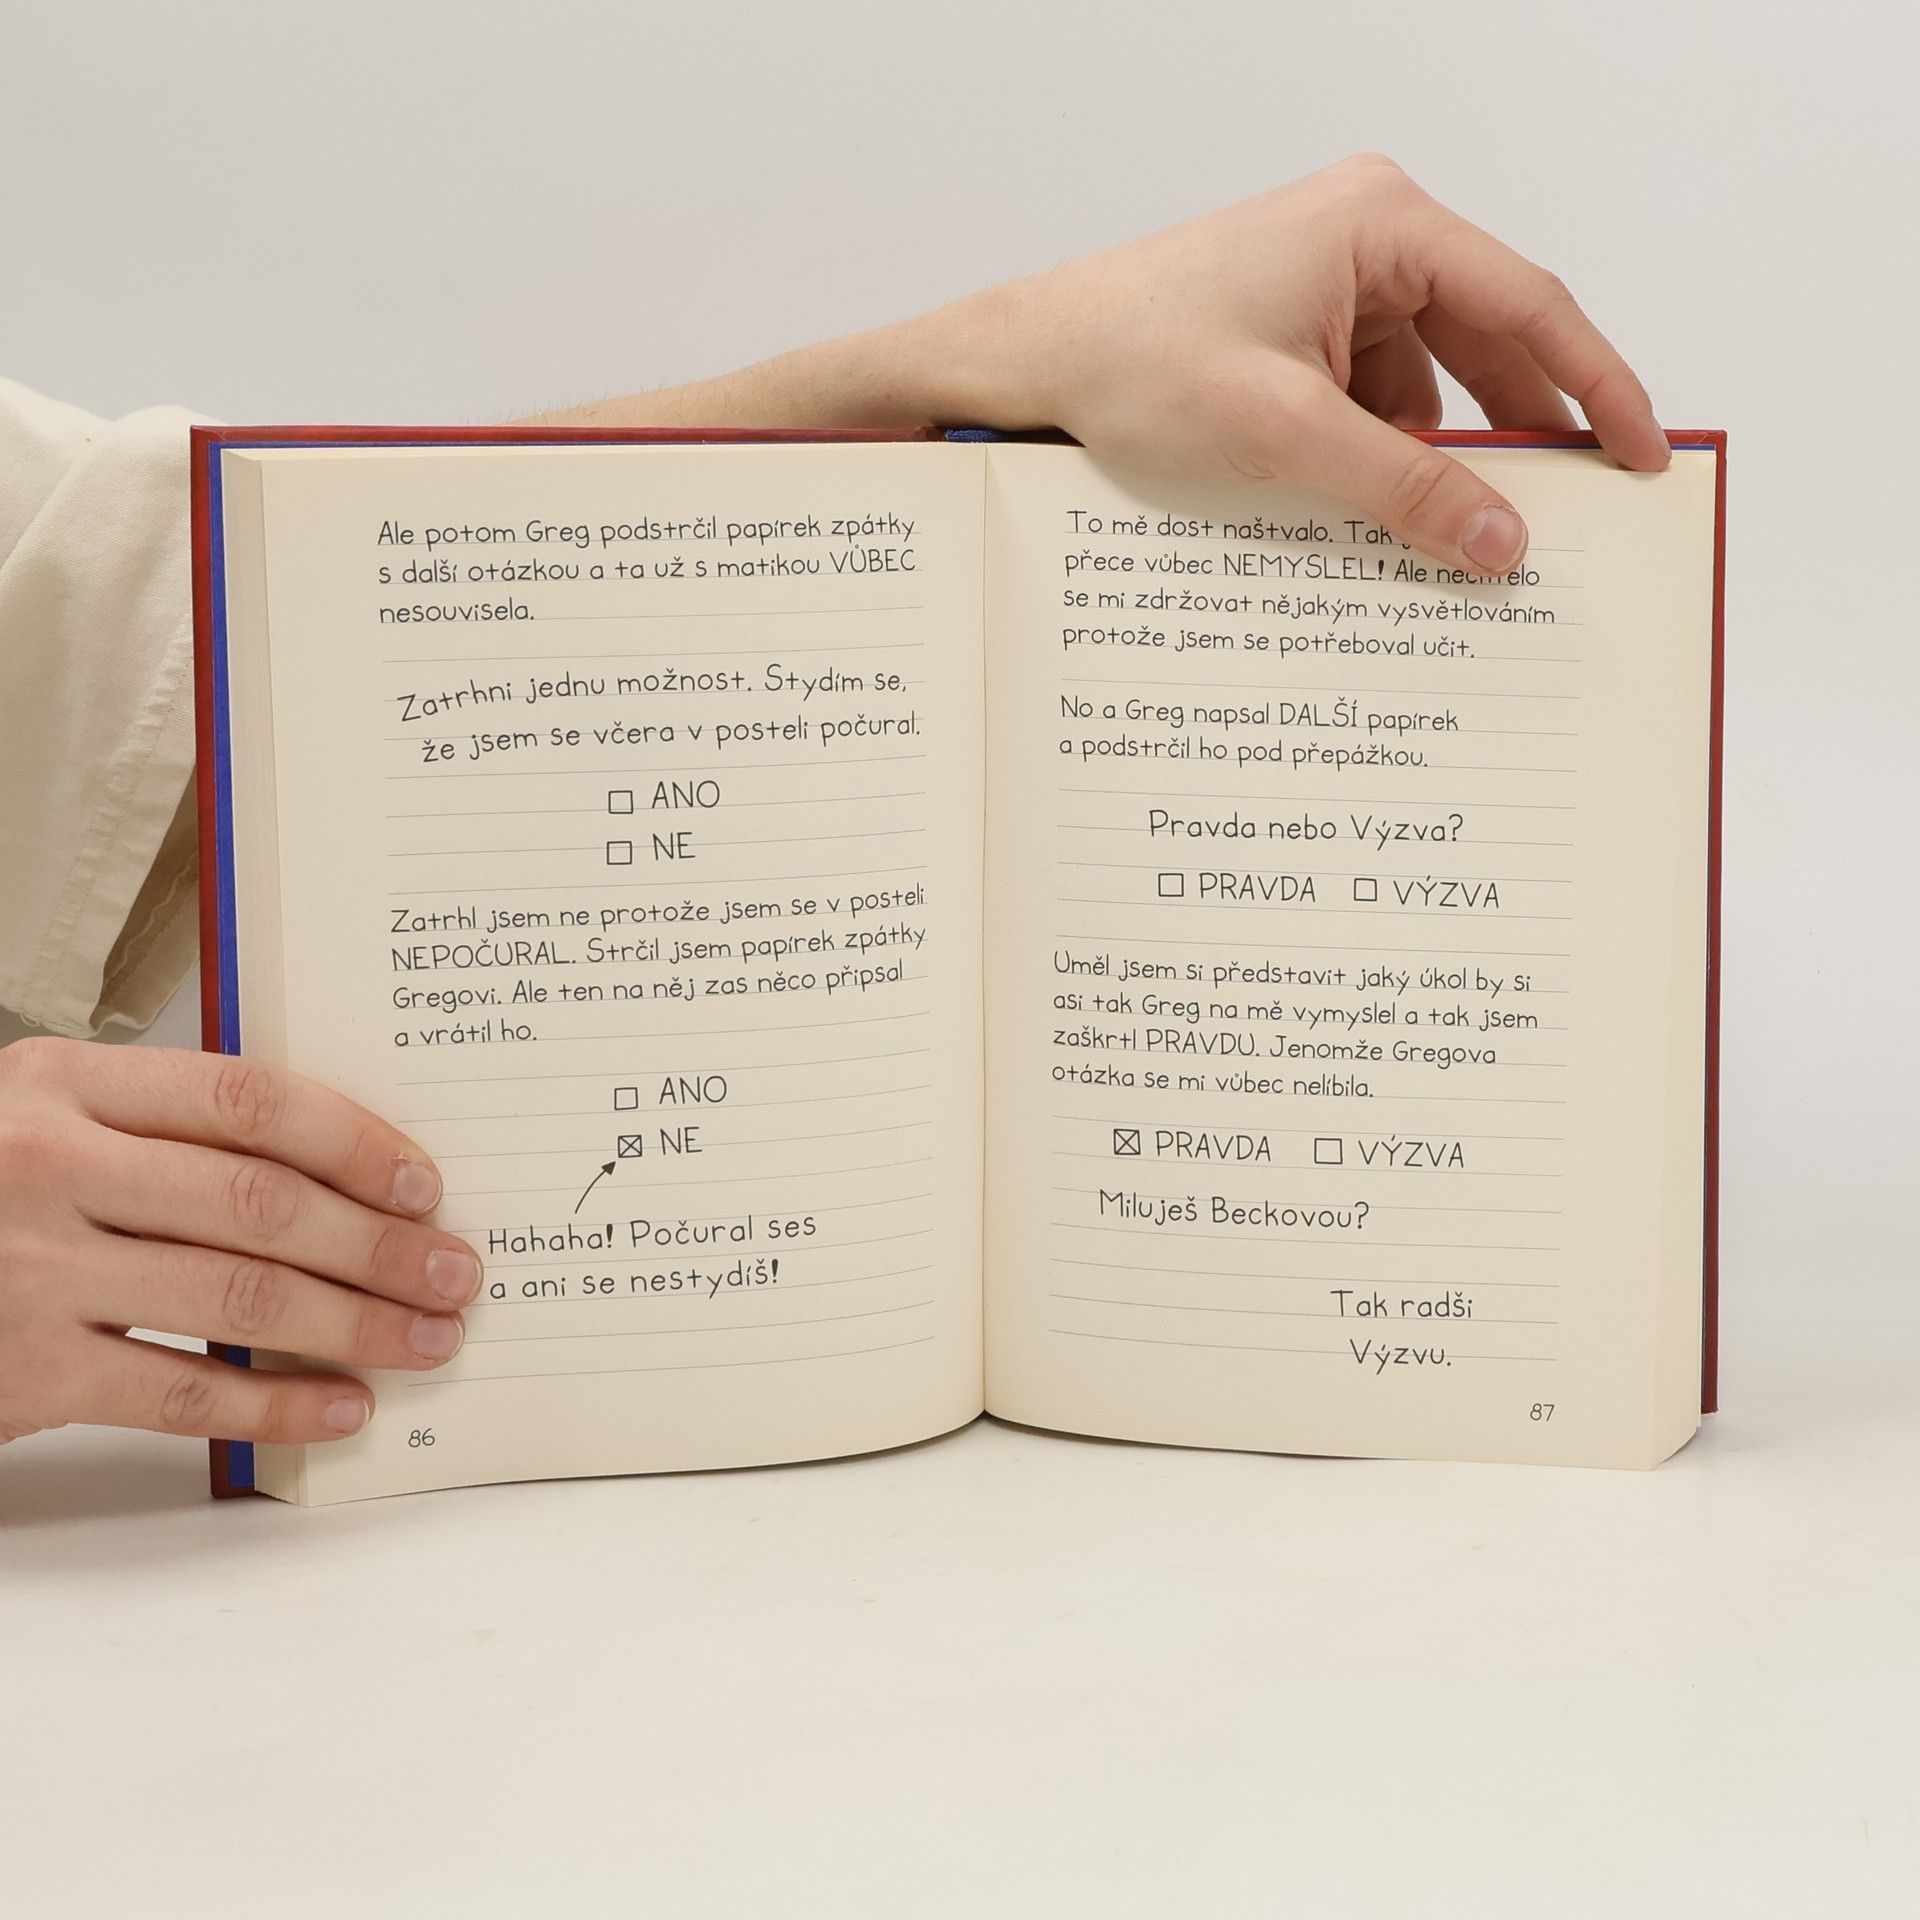 Ale potom Greg podstrčil papírek zpátky
s další otázkou a ta už s matikou VŮBEC
nesouvisela.
Zatrhni jednu možnost. Stydím se,
že jsem se včera v posteli počural.
ANO
NE
Zatrhl jsem ne protože jsem se v posteli
NEPOČURAL. Strčil jsem papírek zpátky
Gregovi. Ale ten na něj zas něco připsal
a vrátil ho.
ANO
NE
Hahaha! Počural ses
a ani se nestydíš!
86
To mě dost naštvalo. Tak
přece vůbec NEMYSLEL! Ale
se mi zdržovat nějakým vysvětlováním
protože jsem se potřeboval učit.
No a Greg napsal DALŠÍ papírek
a podstrčil ho pod přepážkou.
Pravda nebo Výzva?
PRAVDA VÝZVA
Uměl jsem si představit jaký úkol by si
asi tak Greg na mě vymyslel a tak jsem
zaškrtl PRAVDU. Jenomže Gregova
otázka se mi vůbec nelíbila.
PRAVDA VÝZVA
Miluješ Beckovou?
Tak radši
Výzvu.
87